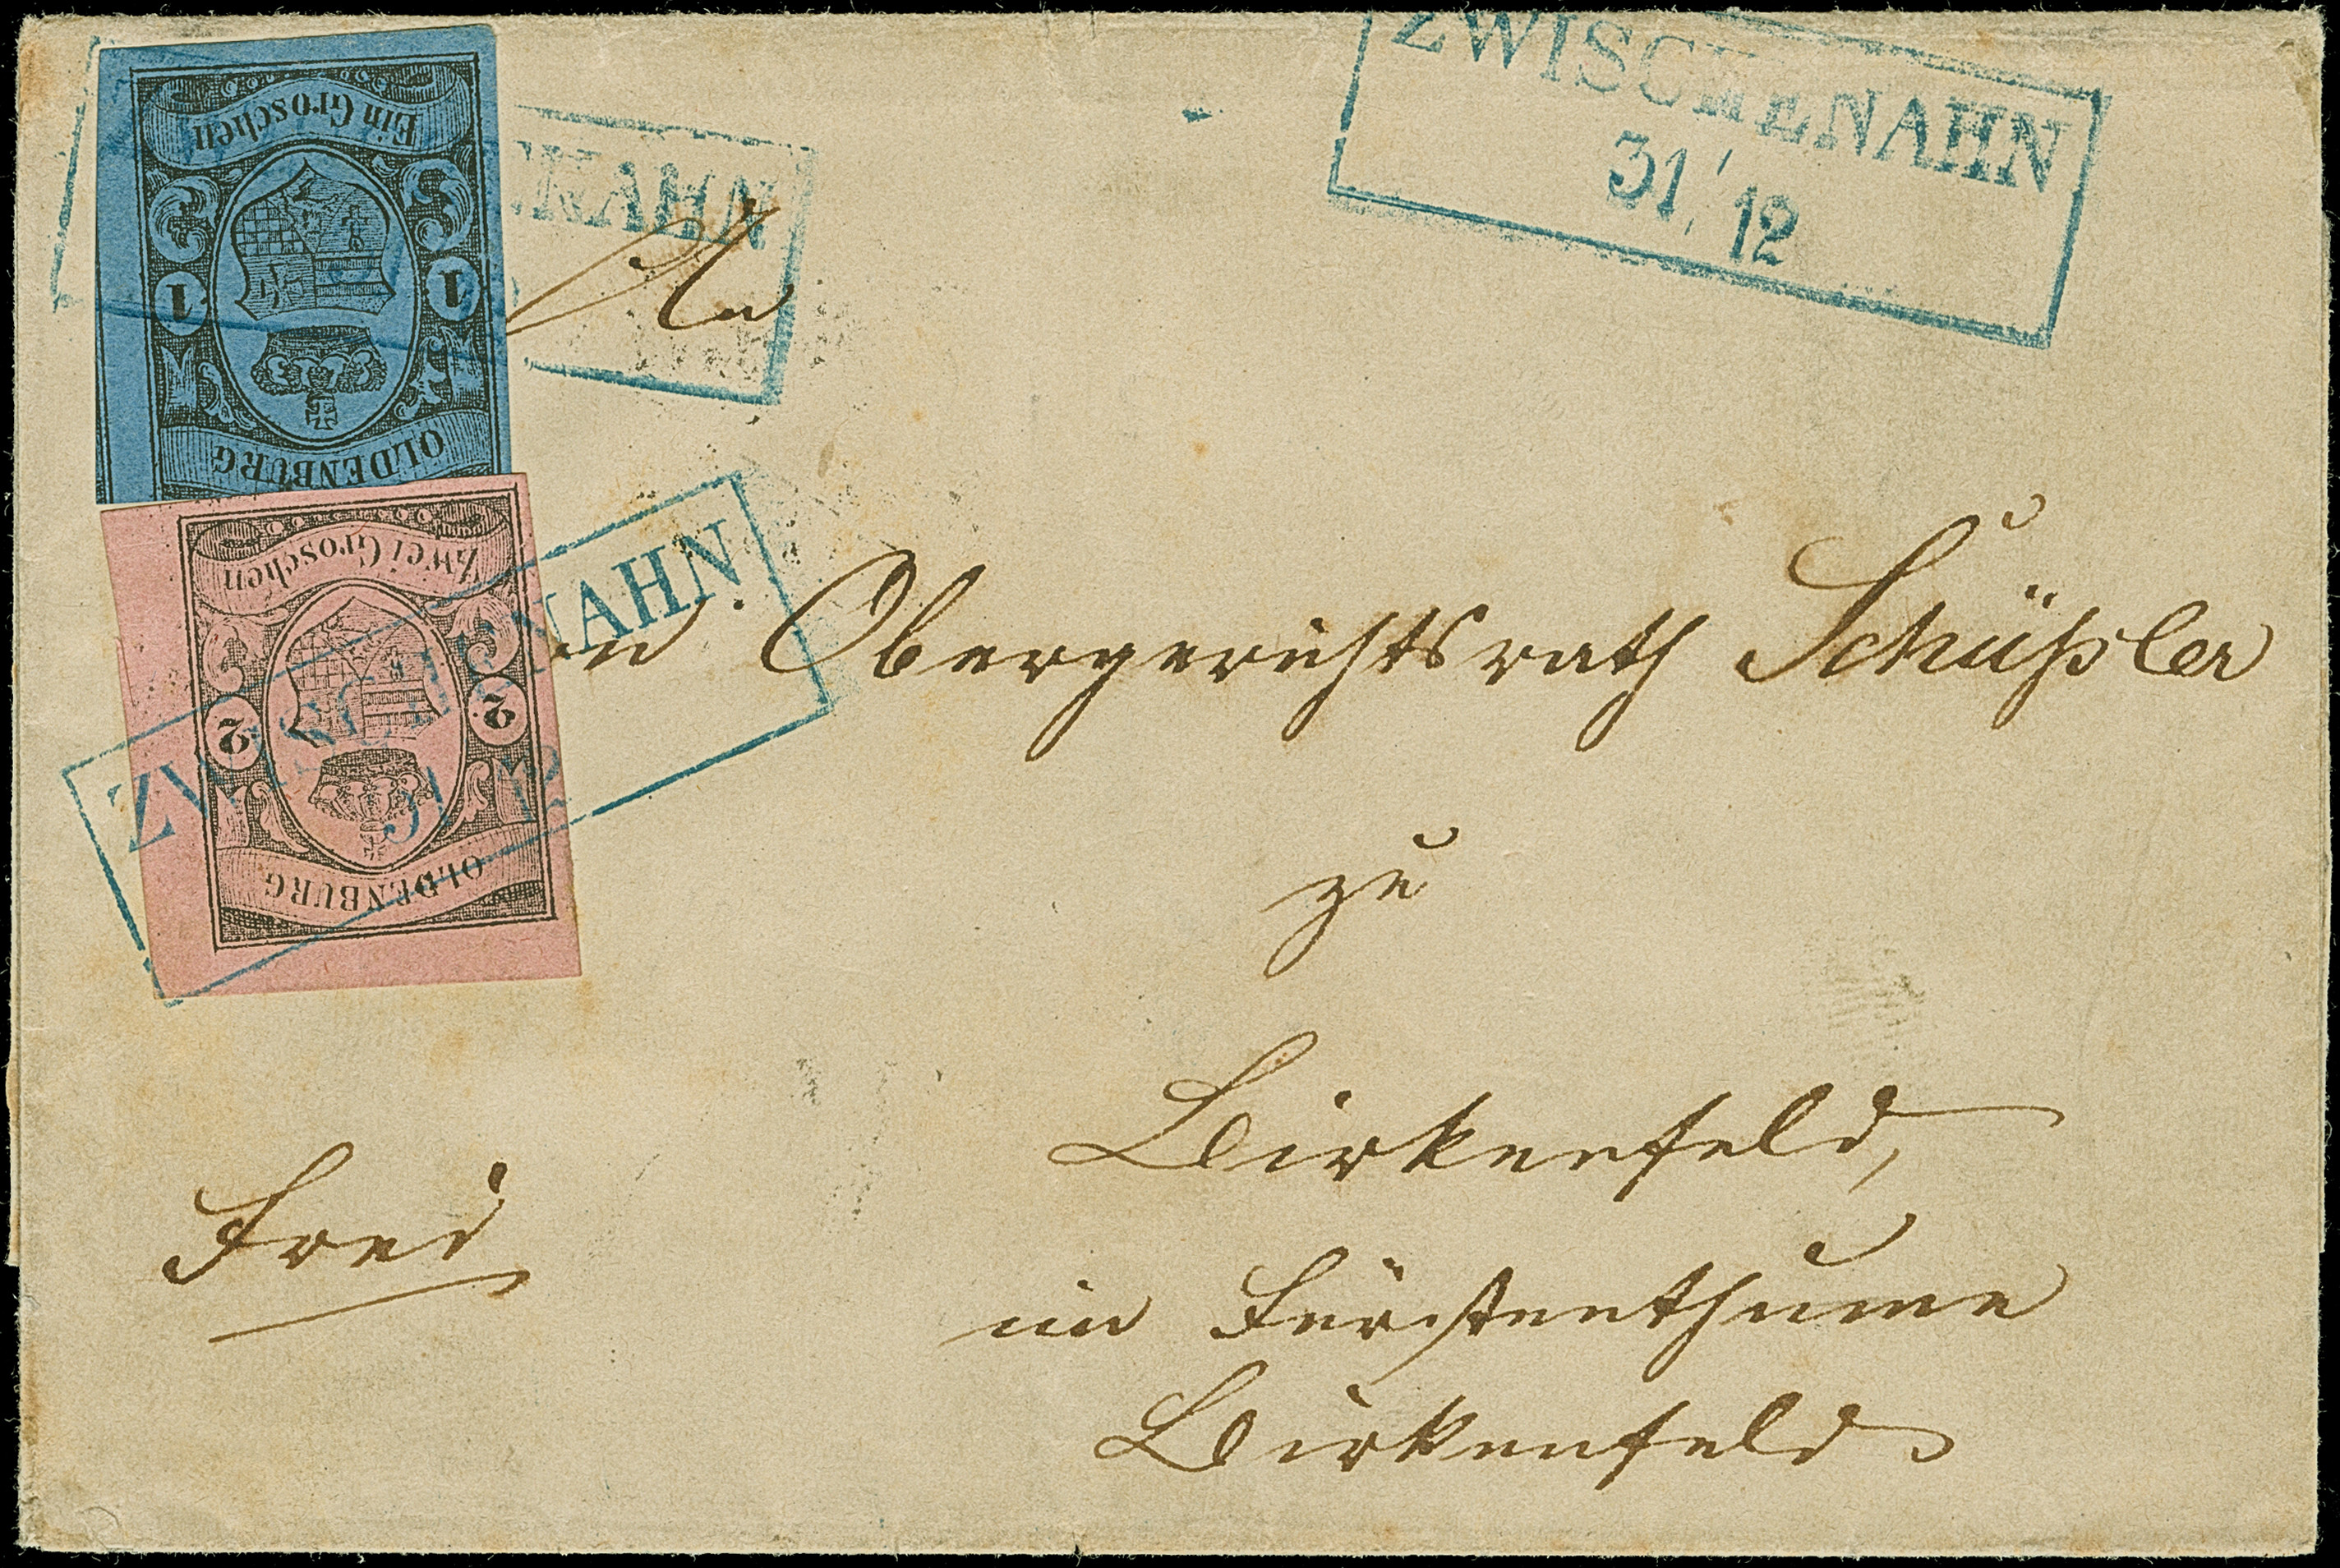 ZWISCHENAHN
31/12
Ein Groschen
1 1
OLDENBURG
ENAHN
An
Zwei Groschen
2 2
OLDENBURG
ZWISCHENAHN
31 12
Obergerichtsrath Schüßler
zu
Birkenfeld,
Frei
im Fürstenthume
Birkenfeld